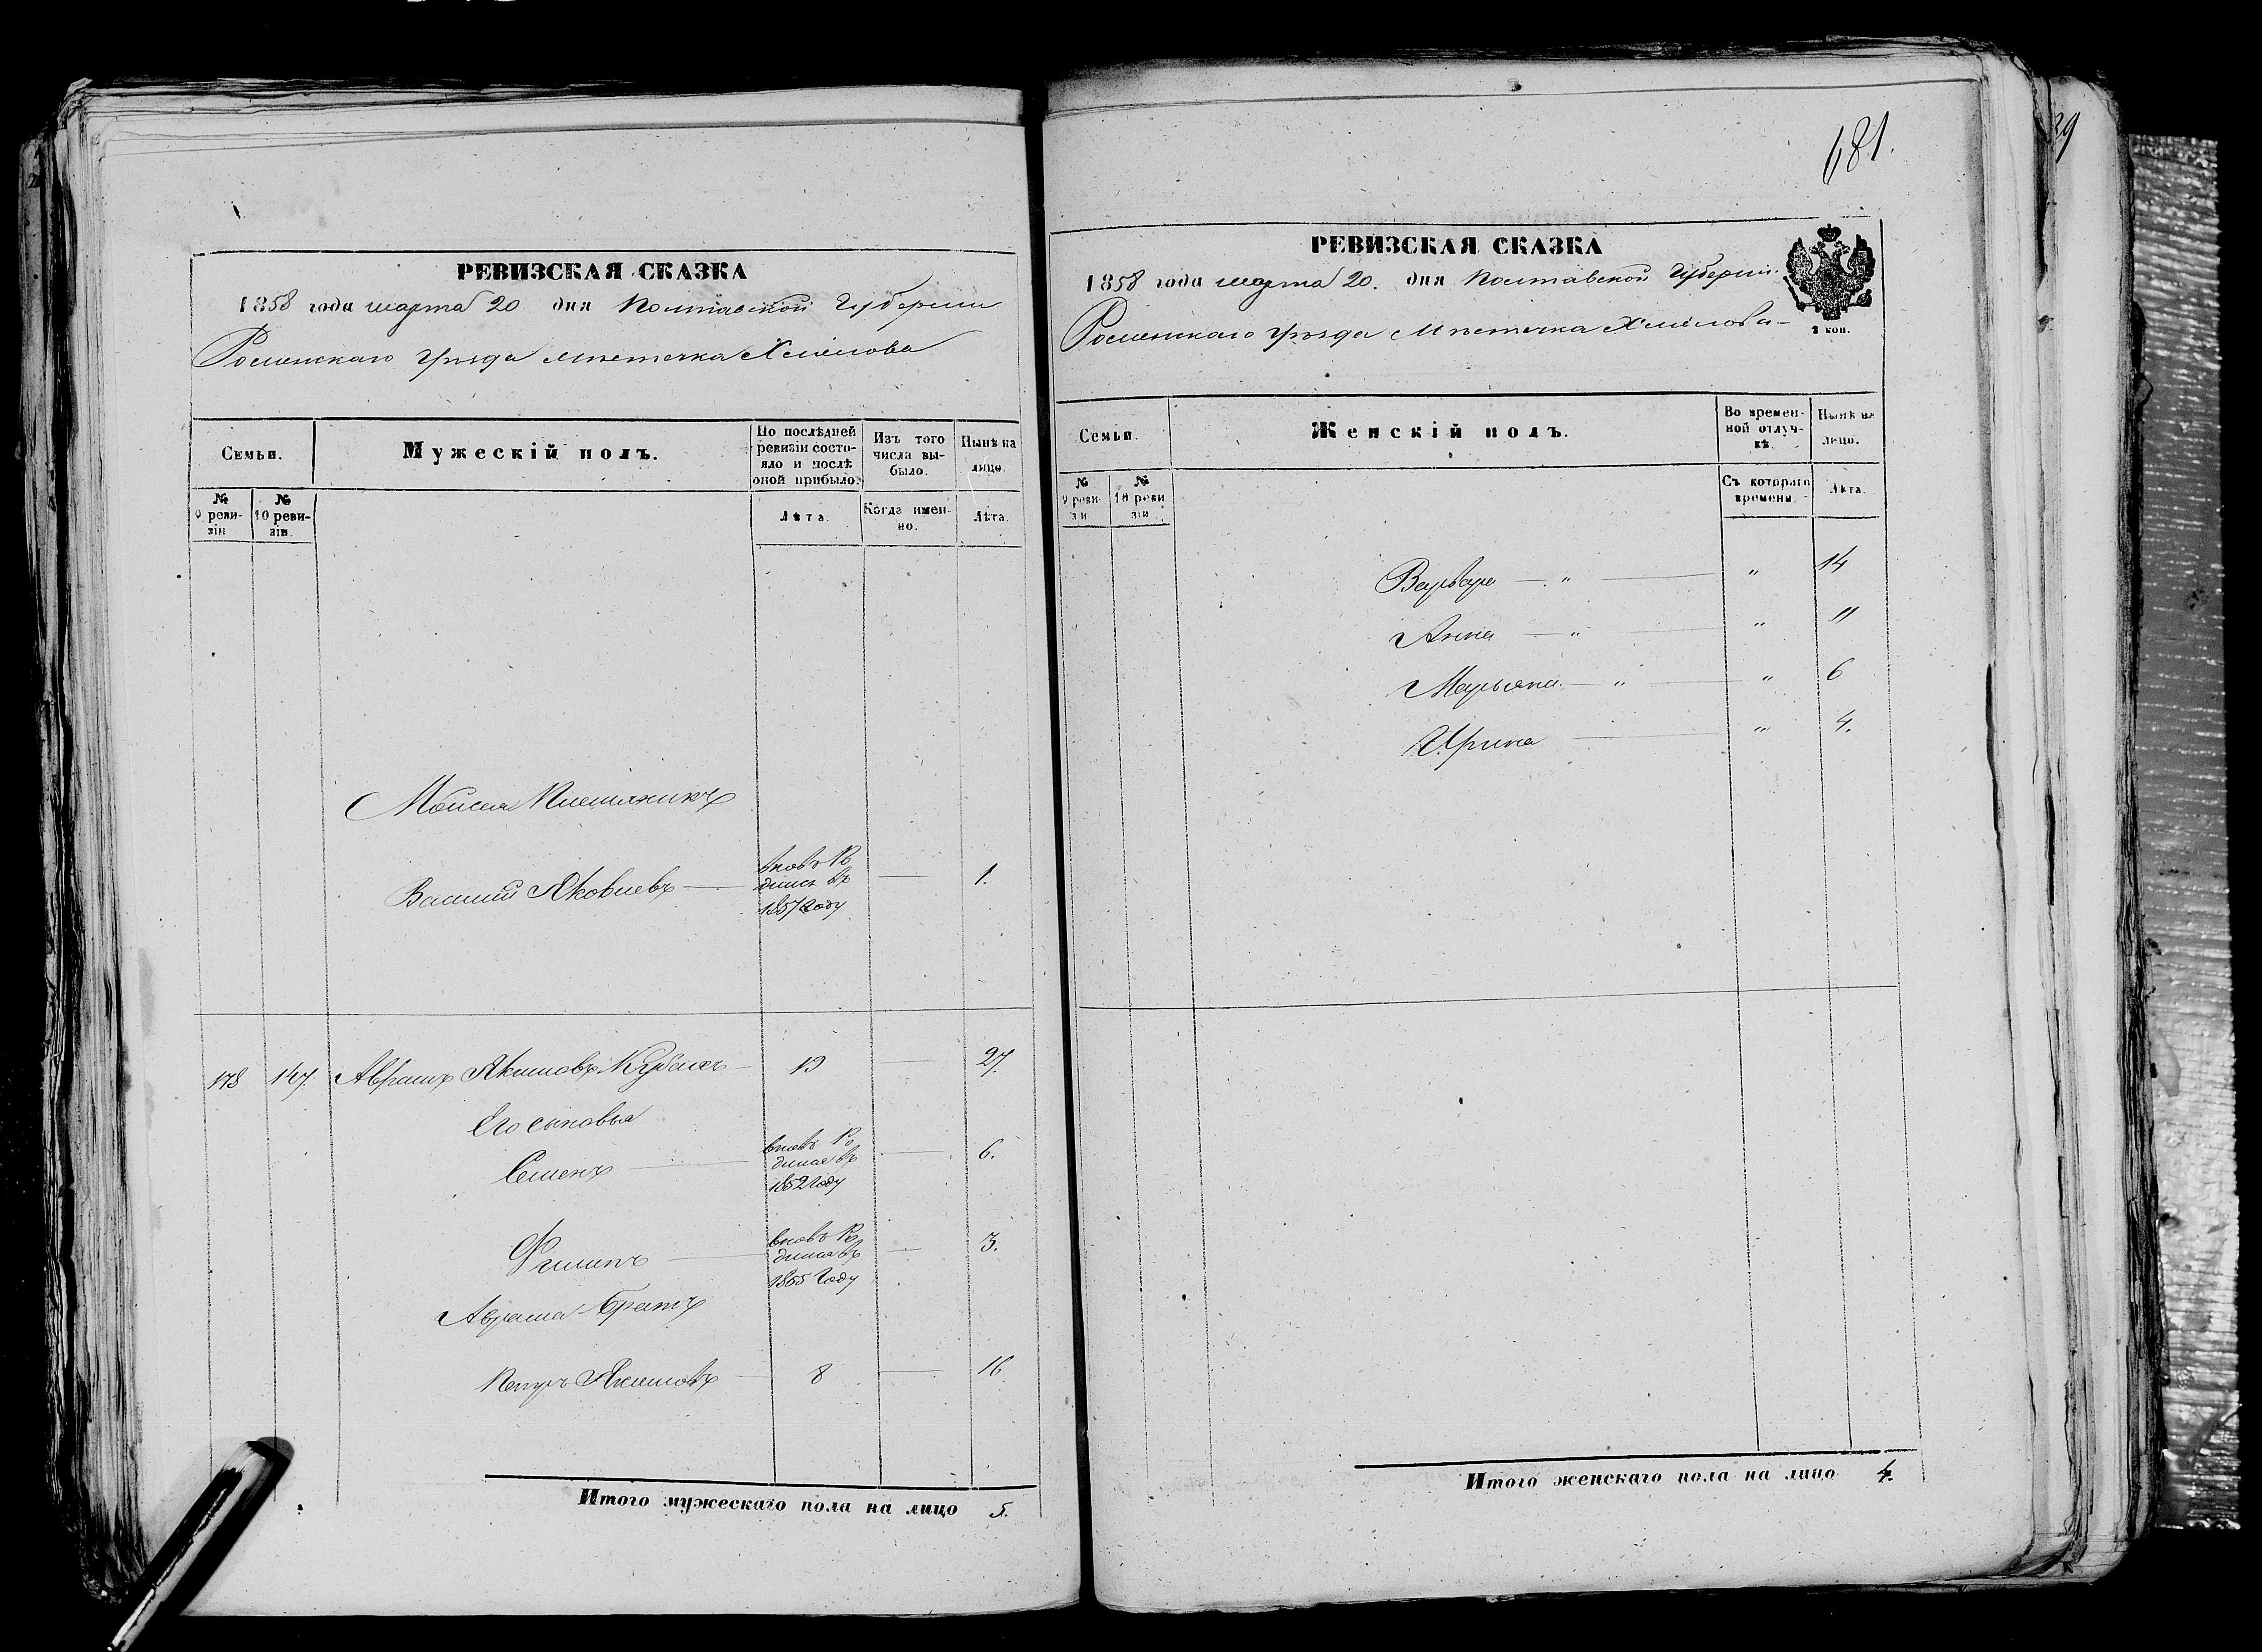 РЕВИЗСКАЯ СКАЗКА
1858 года марта 20 дня Полтавской Губернии
Роменскаго Уѣзда Мѣстечка Хмѣлова
Семьи.
Мужескій полъ.
По послѣдней ревизіи состояло и послѣ оной прибыло.
Изъ того числа выбыло.
Нынѣ на лицо.
№ 9 ревизіи
№ 10 ревизіи.
Лѣта.
Когда именно.
Лѣта.
Моисея Племянникъ
Василий Яковлевъ вновь Родился въ 1857 Году — 1.
178 147. Аврамъ Якимовъ 19 — 27.
Его сыновья
Семенъ вновь Родился въ 1852 Году — 6.
Филипъ вновь Родился въ 1855 Году — 3.
Аврама Братъ
Петръ Якимовъ 8 — 16
Итого мужескаго пола на лицо 5.
681.
РЕВИЗСКАЯ СКАЗКА
1858 года марта 20. дня Полтавской Губерніи
Роменскаго Уѣзда Мѣстечка Хмѣлова
1 коп.
Семьи.
Женскій полъ.
Во временной отлучкѣ.
Нынѣ на лицо.
№ 9 ревизіи
№ 10 ревизіи
Съ котораго времени.
Лѣта.
Варвара — „ — „ 14
Анна — „ — „ 11
Марьяна — „ — „ 6
Ирина — „ 4.
Итого женскаго пола на лицо 4.